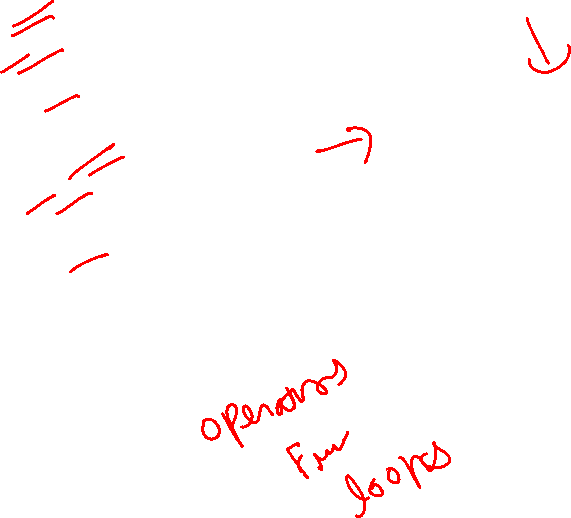 operators
loops